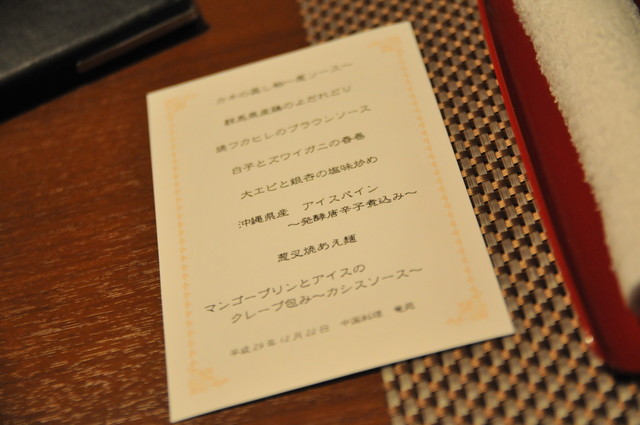 群馬県産鶏のよだれどり
焼フカヒレのブラウンソース
白子とズワイガニの春巻
大エビと銀杏の塩味炒め
沖縄県産 アイスバイン
～発酵唐辛子煮込み～
葱叉焼あえ麺
マンゴープリンとアイスの
クレープ包み～カシスソース～
平成29年12月22日 中国料理